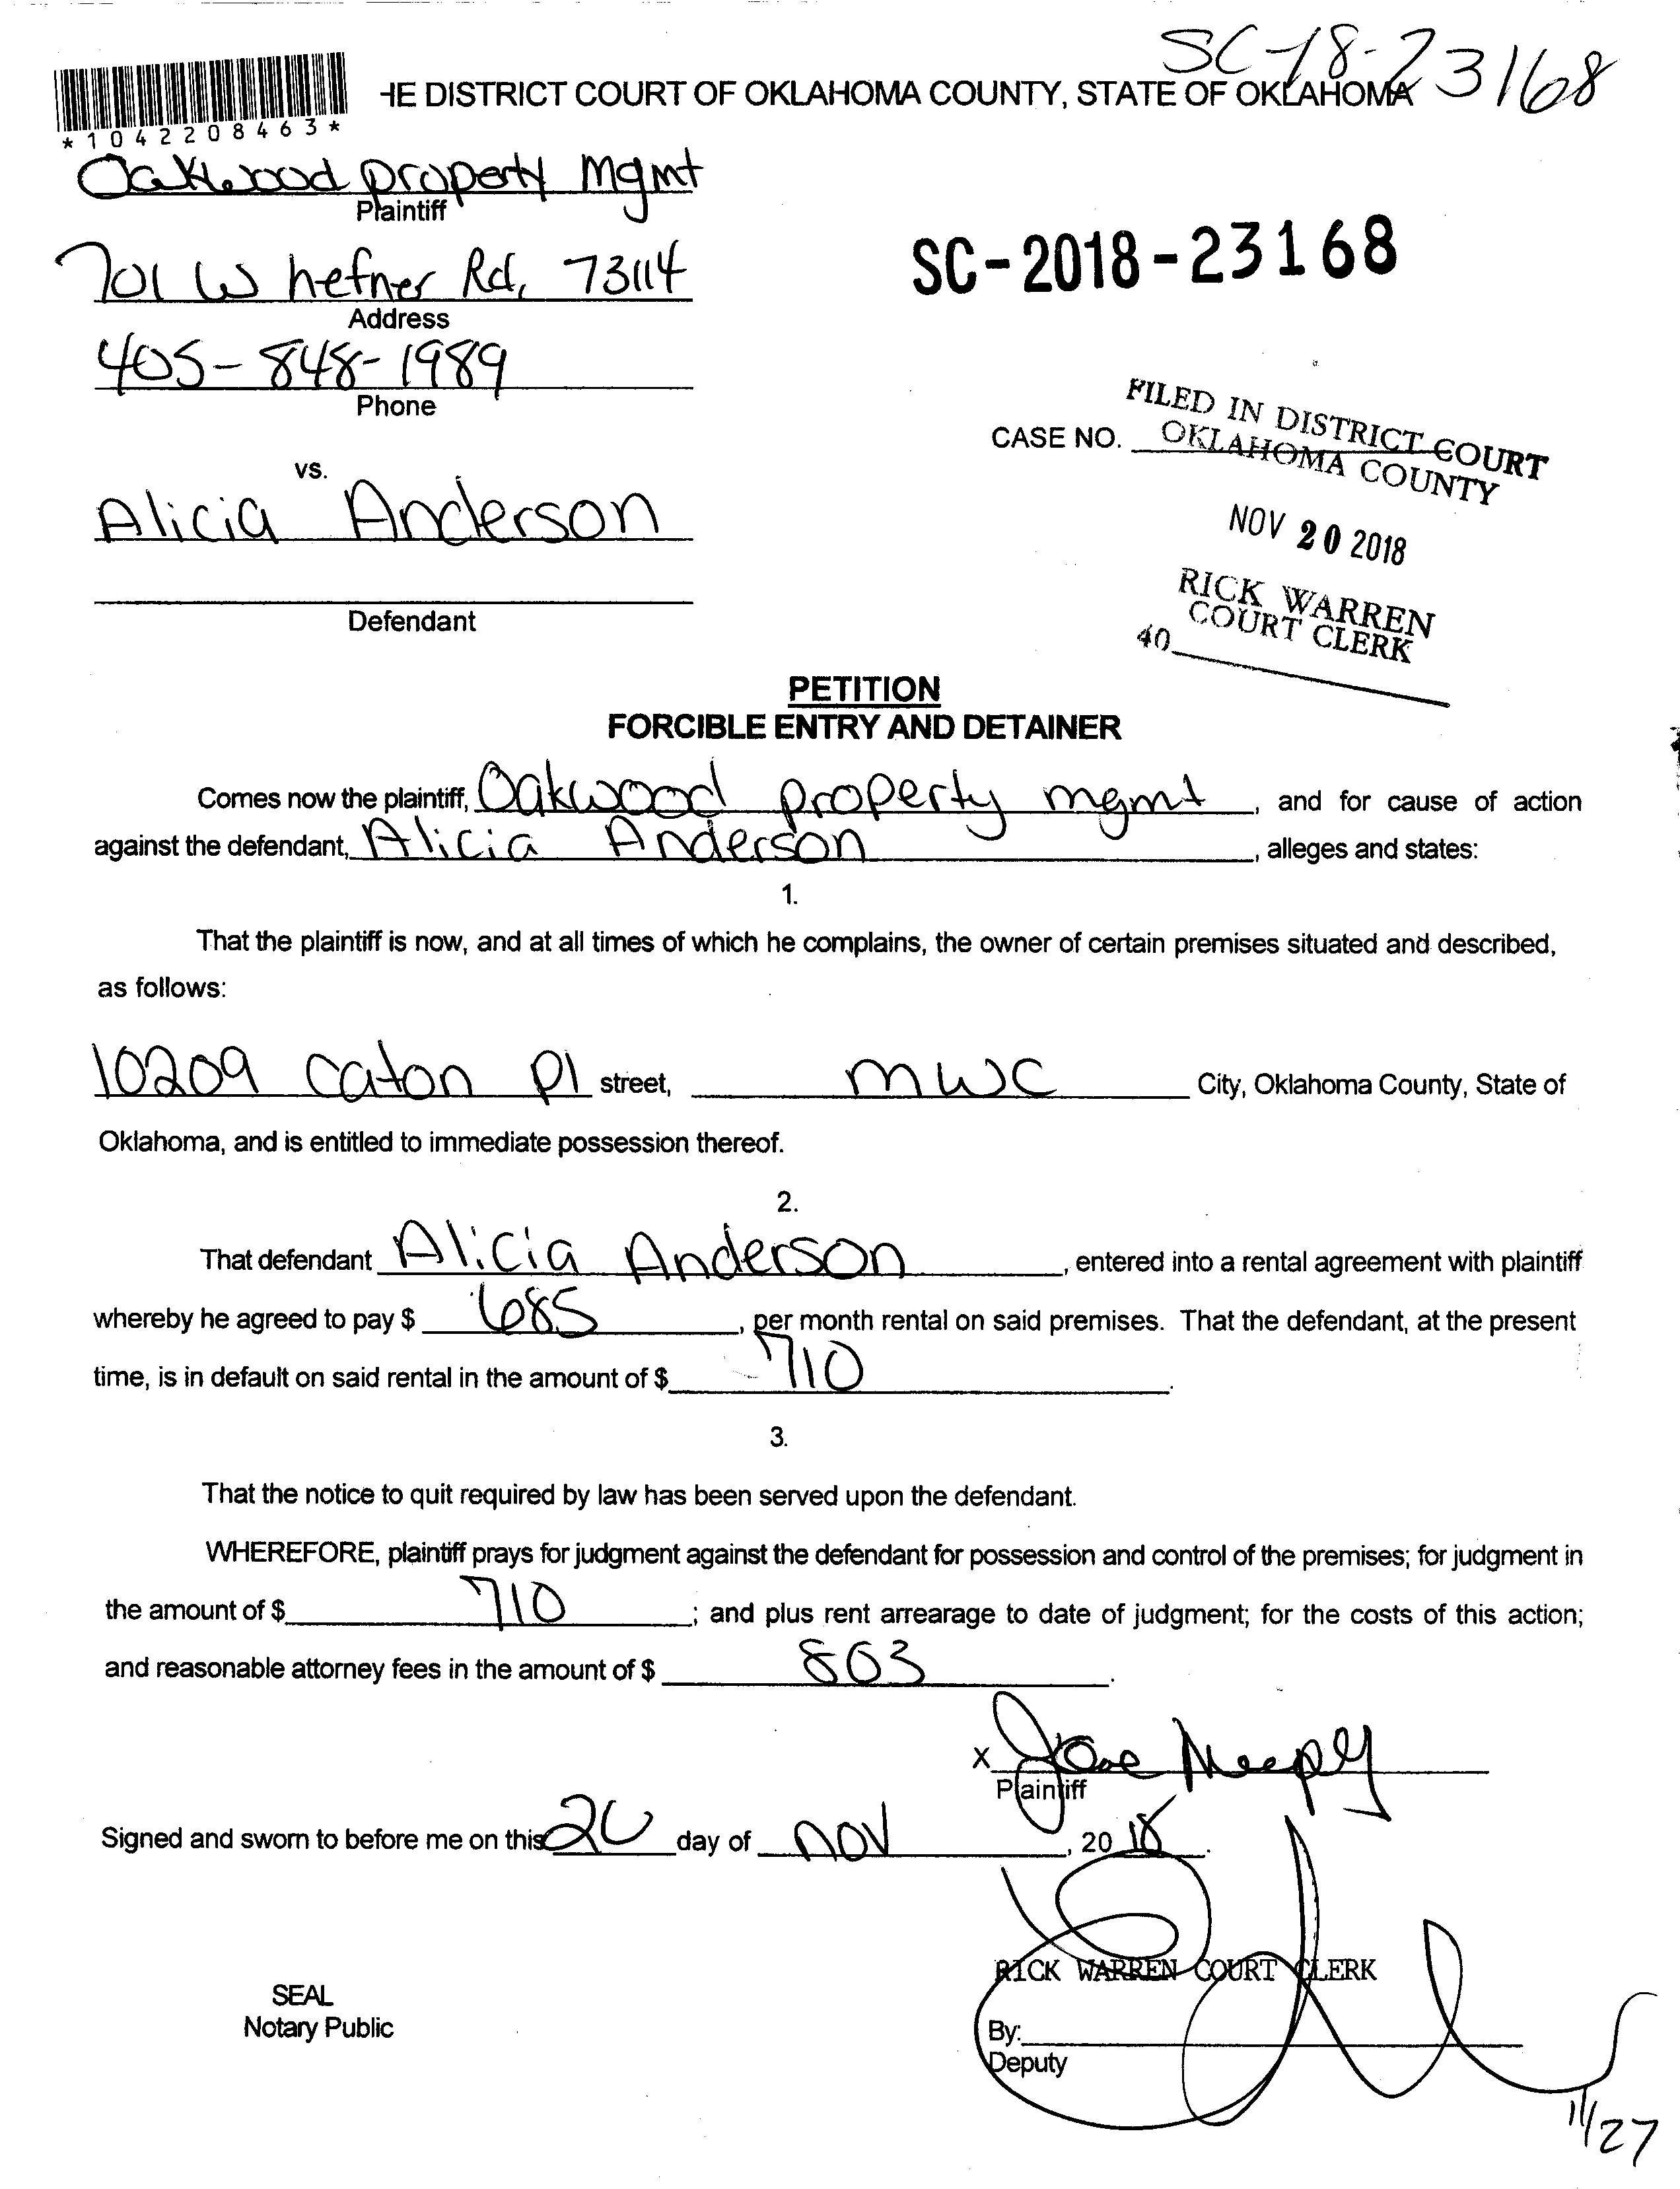 SC-18-23168
HE DISTRICT COURT OF OKLAHOMA COUNTY, STATE OF OKLAHOMA
*1042208463*
Oakwood property mgmt
Plaintiff
701 W hefner Rd, 73114
Address
SC-2018-23168
405-848-1989
Phone
FILED IN DISTRICT COURT
CASE NO. OKLAHOMA COUNTY
vs.
Alicia Anderson
NOV 20 2018
RICK WARREN
COURT CLERK
Defendant
40
PETITION
FORCIBLE ENTRY AND DETAINER
Comes now the plaintiff, Oakwood property mgmt, and for cause of action
against the defendant, Alicia Anderson, alleges and states:
1.
That the plaintiff is now, and at all times of which he complains, the owner of certain premises situated and described,
as follows:
10209 Caton Pl street, MWC City, Oklahoma County, State of
Oklahoma, and is entitled to immediate possession thereof.
2.
That defendant Alicia Anderson, entered into a rental agreement with plaintiff
whereby he agreed to pay $ 685, per month rental on said premises. That the defendant, at the present
time, is in default on said rental in the amount of $ 710.
3.
That the notice to quit required by law has been served upon the defendant.
WHEREFORE, plaintiff prays for judgment against the defendant for possession and control of the premises; for judgment in
the amount of $ 710; and plus rent arrearage to date of judgment; for the costs of this action;
and reasonable attorney fees in the amount of $ 803.
X
Plaintiff
Signed and sworn to before me on this 20 day of nov, 2018.
RICK WARREN COURT CLERK
SEAL
Notary Public
By:
Deputy
11/27